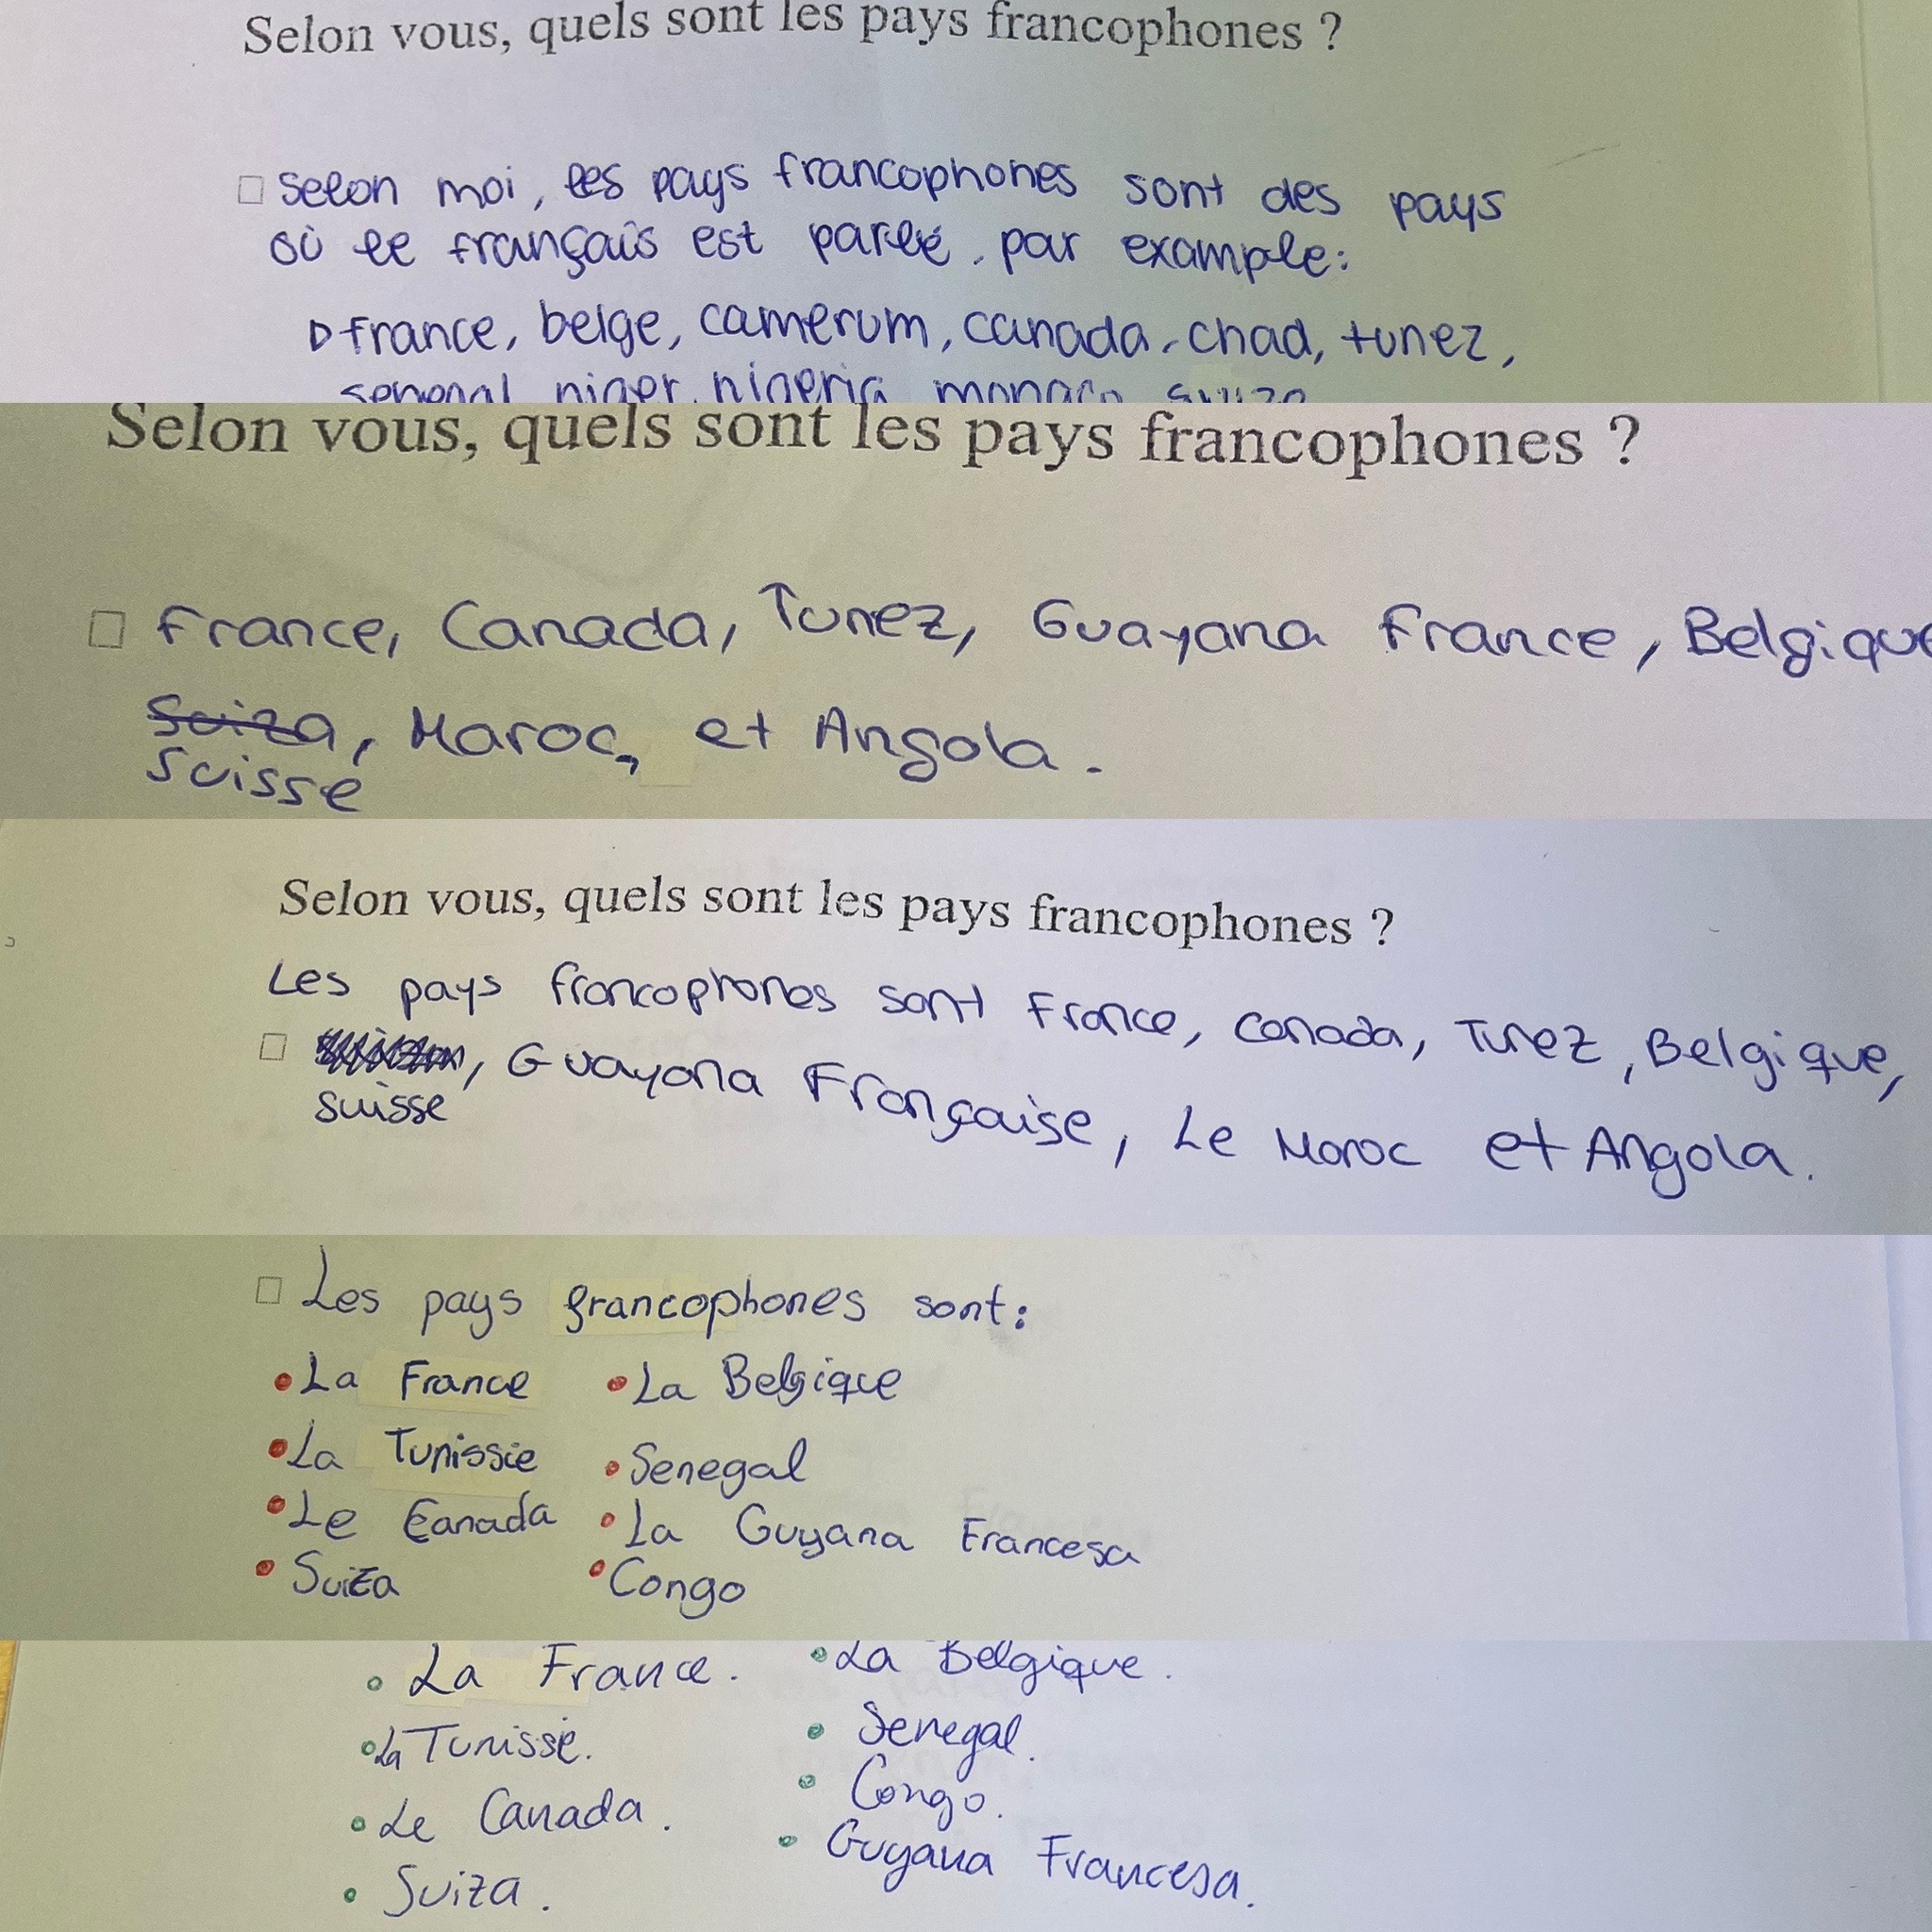 Selon vous, quels sont les pays francophones ?
□ selon moi, les pays francophones sont des pays
où le français est parlé. par example:
▷ france, belge, camerum, canada, chad, tunez,
senegal, niger, nigeria, monaco, suiza
Selon vous, quels sont les pays francophones ?
□ France, Canada, Tunez, Guayana France, Belgique
Suiza, Maroc, et Angola.
Suisse
Selon vous, quels sont les pays francophones ?
Les pays francophones sont France, Canada, Tunez, Belgique,
□ , Guayana Française, Le Maroc et Angola.
suisse
□ Les pays francophones sont:
• La France • La Belgique
• La Tunissie • Senegal
• Le Canada • La Guyana Francesa
• Suiza • Congo
• La France. • La Belgique.
• La Tunissie. • Senegal.
• Le Canada. • Congo.
• Suiza. • Guyana Francesa.